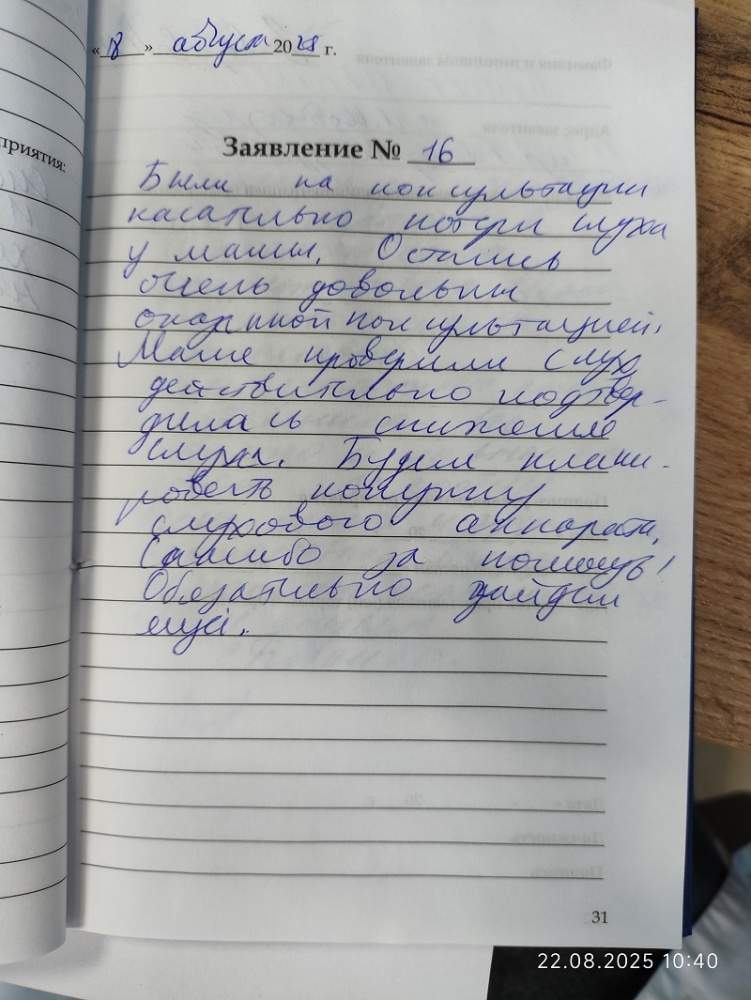 «8» август 20 г.
приятия:
Заявление № 16
Были на консультации
касательно потери слуха
у мамы. Остались
очень довольны
оказанной консультацией.
Маме проверили слух,
действительно подтвер-
дилась снижение
слуха. Будем плани-
ровать покупку
слухового аппарата.
Спасибо за помощь!
Обязательно зайдем
ещё.
31
22.08.2025 10:40